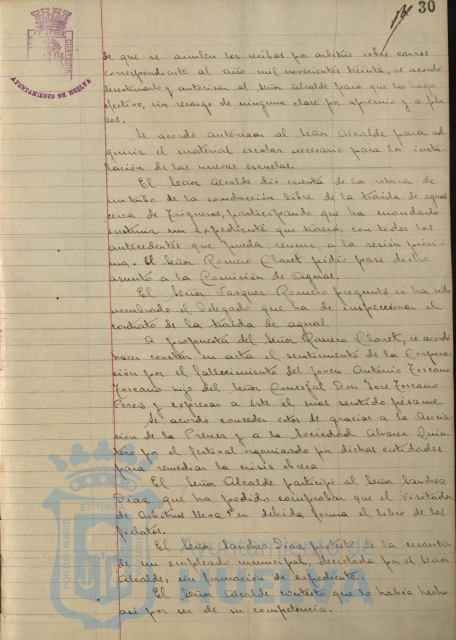 30
AYUNTAMIENTO DE HUELVA
de que se anulen los recibos por arbitrio sobre carros
correspondiente al año mil novecientos treinta, se acordó
desestimarlo y autorizar al Señor Alcalde para que los haga
efectivo, sin recargo de ninguna clase por apremio y a pla
zos.
Se acordó autorizar al Señor Alcalde para ad
quirir el material escolar necesario para la insta
lación de las nuevas escuelas.
El Señor Alcalde dió cuenta de la rotura de
un tubo de la conducción libre de la traida de aguas
cerca de Trigueros, participando que ha mandado
instruir un expediente que traerá, con todos los
antecedentes que pueda reunir, a la sesión próxi
ma. El Señor Romero Claret pidió pase dicho
asunto a la Comisión de Aguas.
El Señor Vazquez Romero preguntó si ha sido
nombrado el Delegado que ha de inspeccionar el
contrato de la traida de aguas.
A propuesta del Señor Romero Claret, se acordó
hacer constar en acta el sentimiento de la Corpora
ción por el fallecimiento del joven Antonio Toscano
Toscano hijo del Señor Concejal Don José Toscano
Perez, y expresar a éste el mas sentido pésame.
Se acordó conceder votos de gracias a la Asocia
ción de la Prensa y a la Sociedad Alvarez Quin
tero por el festival organizado por dichas entidades
para remediar la crisis obrera.
El Señor Alcalde participó al Señor Sanchez
Diaz que ha podido comprobar que el Visitador
de Arbitrios lleva en debida forma el libro de los
El Señor Sanchez Diaz protestó de la cesantía
de un empleado municipal, decretada por el Señor
Alcalde, sin formación de expediente.
El Señor Alcalde contestó que lo había hecho
así por ser de su competencia.
Ayuntamiento de
HUELVA